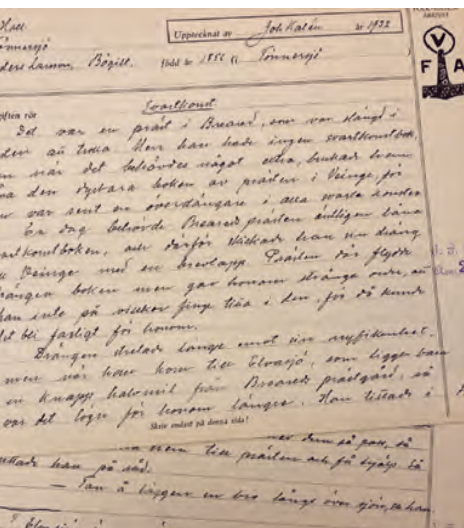 Hall
Upptecknat av Joh Kalén år 1932
Tönnersjö
Larsson, Bögilt. född år 1856 i Tönnersjö
V
F A
Svartkonst
Det var en präst i Breared, som var slängd i
att trolla Men han hade ingen svartkonstbok,
när det behövdes något extra, brukade
den dyrbara boken av prästen i Veinge, för
var sent en överdängare i alla svarta konster
En dag behövde Breared prästen äntligen låna
svartkonstboken, och därför skickade han en dräng
Veinge med en brevlapp. Prästen där flydde
drängen boken men gav honom stränge order, att
han inte på villkor finge titta i den, för då kunde
det bli farligt för honom.
Drängen drelade länge emot sin nyfikenhet.
men när han kom till Elvasjö, som ligger bara
en knapp halvmil från Breareds prästgård, så
var det logn för honom längre. Han tittade i
Skriv endast på denna sida!
dem så pass, så
hem till prästen och få hjälp. Så
han på
— Tan å lägger en bro längs över sjön, sa han.